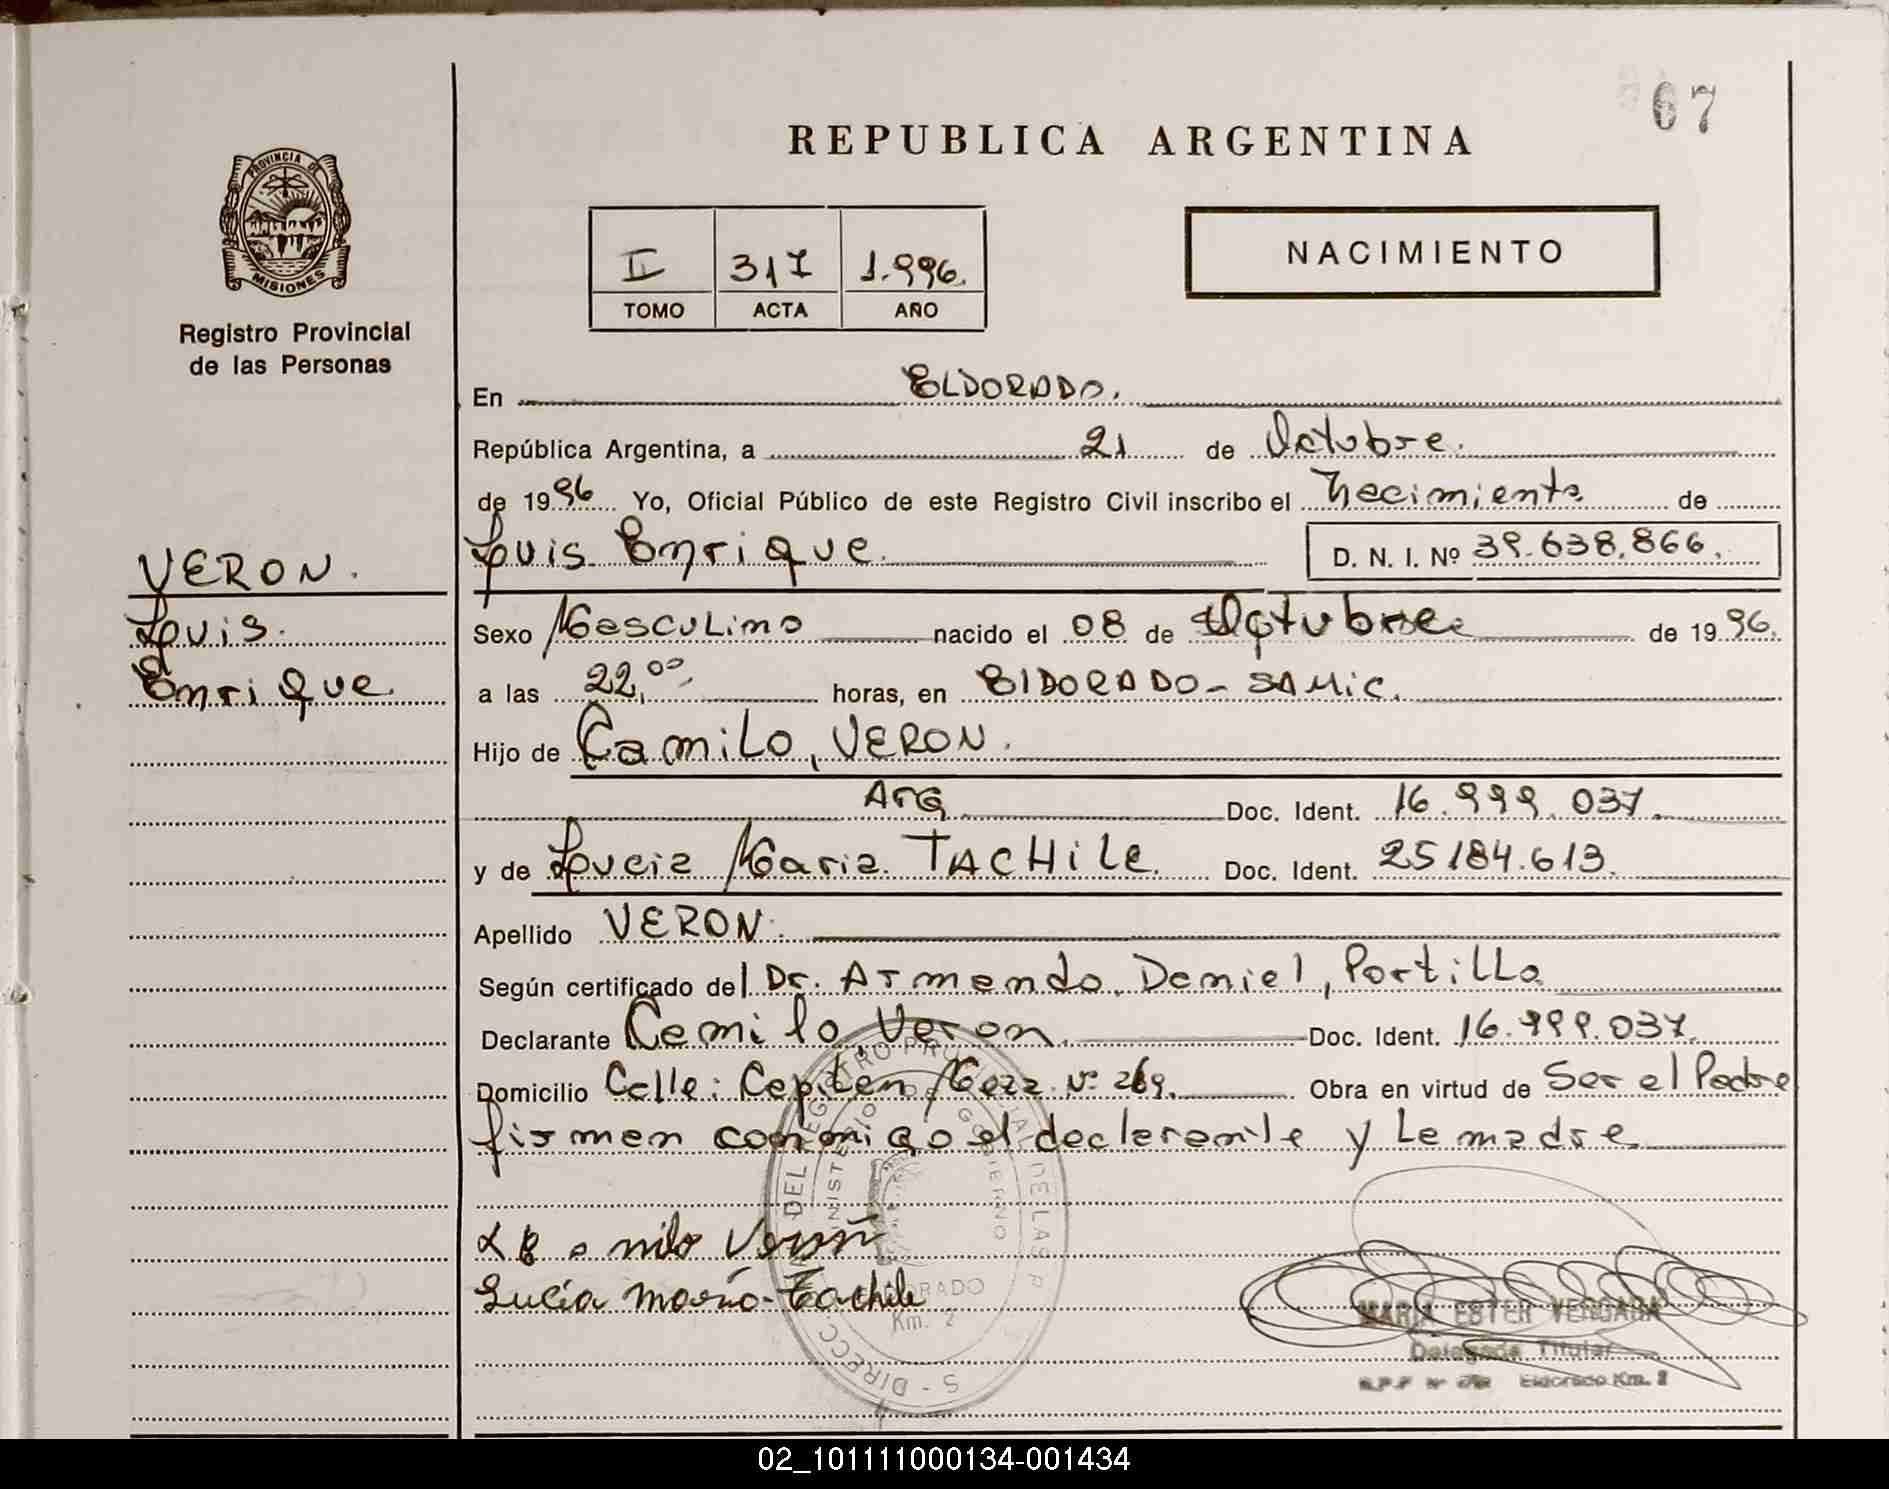 67
REPUBLICA ARGENTINA
PROVINCIA DE
MISIONES
Registro Provincial
de las Personas
II 317 1.996.
TOMO ACTA AÑO
NACIMIENTO
En ELDORADO.
República Argentina, a 21 de Octubre.
de 1996 Yo, Oficial Público de este Registro Civil inscribo el Nacimiento de
Luis Enrique D. N. I. Nº 39.638.866.
VERON.
Luis
Enrique
Sexo Masculino nacido el 08 de Octubre de 1996.
a las 22,00 horas, en ELDORADO - SAMIC.
Hijo de Camilo, VERON.
Arg Doc. Ident. 16.999.037.
y de Lucia Maria TACHILE. Doc. Ident. 25184.613.
Apellido VERON.
Según certificado del Dr. Armando Daniel, Portillo
Declarante Camilo, Veron. Doc. Ident. 16.999.037.
Domicilio Calle: Capitán Nº 269. Obra en virtud de Ser el Padre
firman conmigo el declarante y La madre
Veron
Lucía María Tachile
MARIA ESTER VERGARA
Delegada Titular
Eldorado Km. 2
DIRECC. DEL REGISTRO PROVINCIAL DE LAS P
MINISTERIO DE GOBIERNO
ELDORADO
Km. 2
02_101111000134-001434